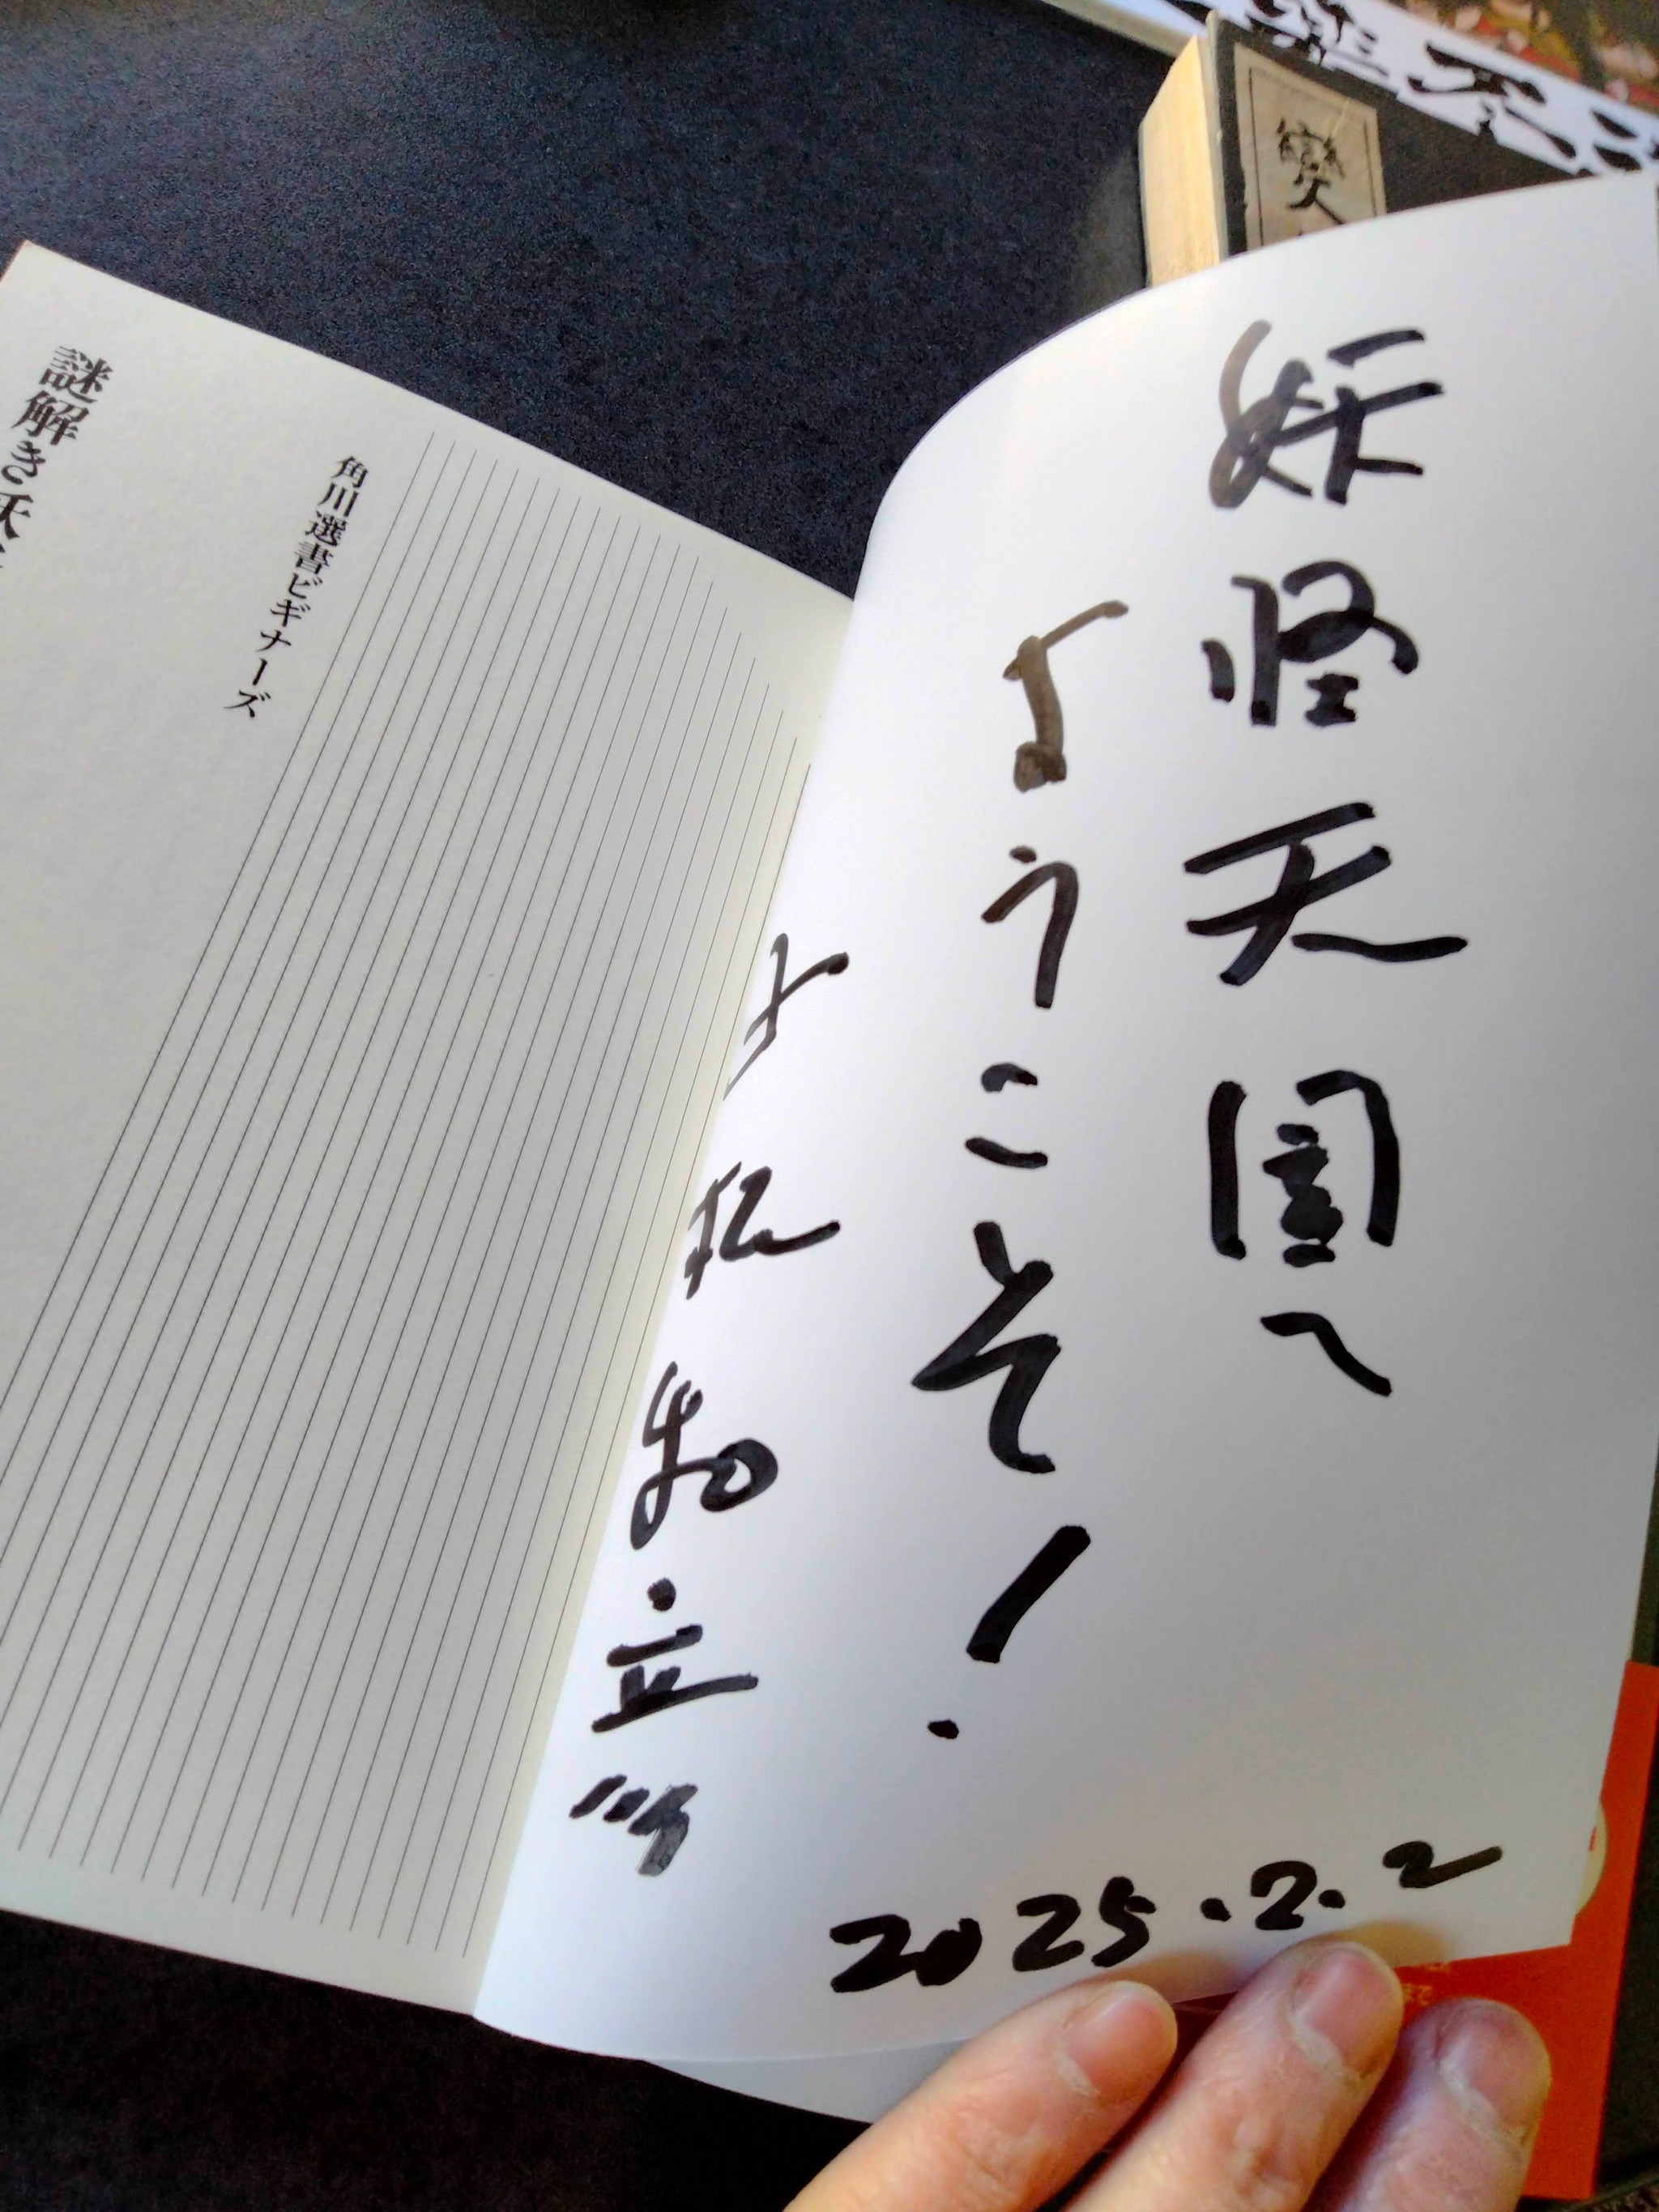 妖怪天国へ
ようこそ!
小松和彦
2025.2.2
角川選書ビギナーズ
謎解き妖